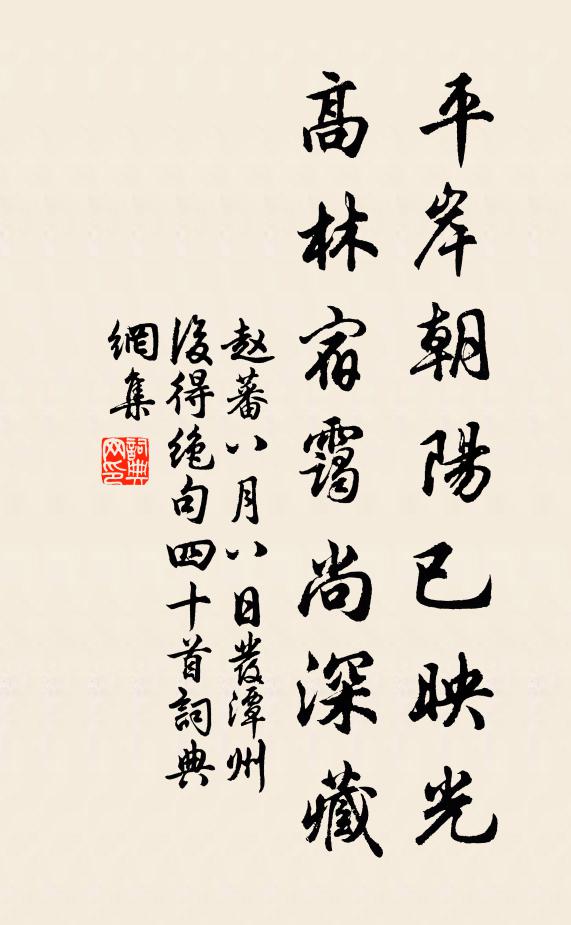 平岸朝陽已映光
高林宿靄尚深藏
赵蕃八月八日發潭州
後得绝句四十首詞典
網集
詞典
网印